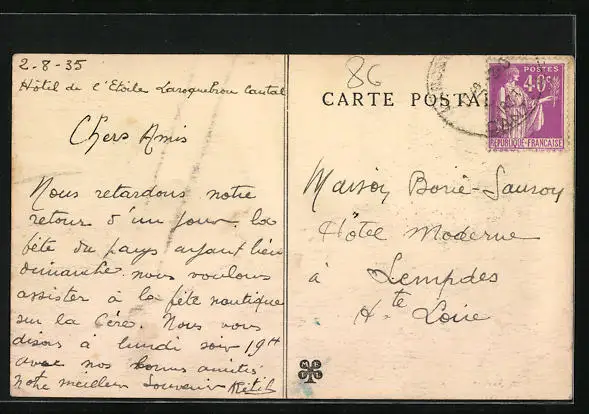 2-8-35
Hôtel de l'Etoile Laroquebrou Cantal
Chers Amis
Nous retardons notre
retour d'un jour. la
fête du pays ayant lieu
dimanche nous voulons
assister à la fête nautique
sur la Cère. Nous vous
disons à lundi soir 19H
avec nos bonnes amitiés
notre meilleur Souvenir
86
CARTE POSTALE
POSTES
40c
REPUBLIQUE-FRANÇAISE
Maison Borie-Sauroy
Hôtel Moderne
à Lempdes
Hte Loire